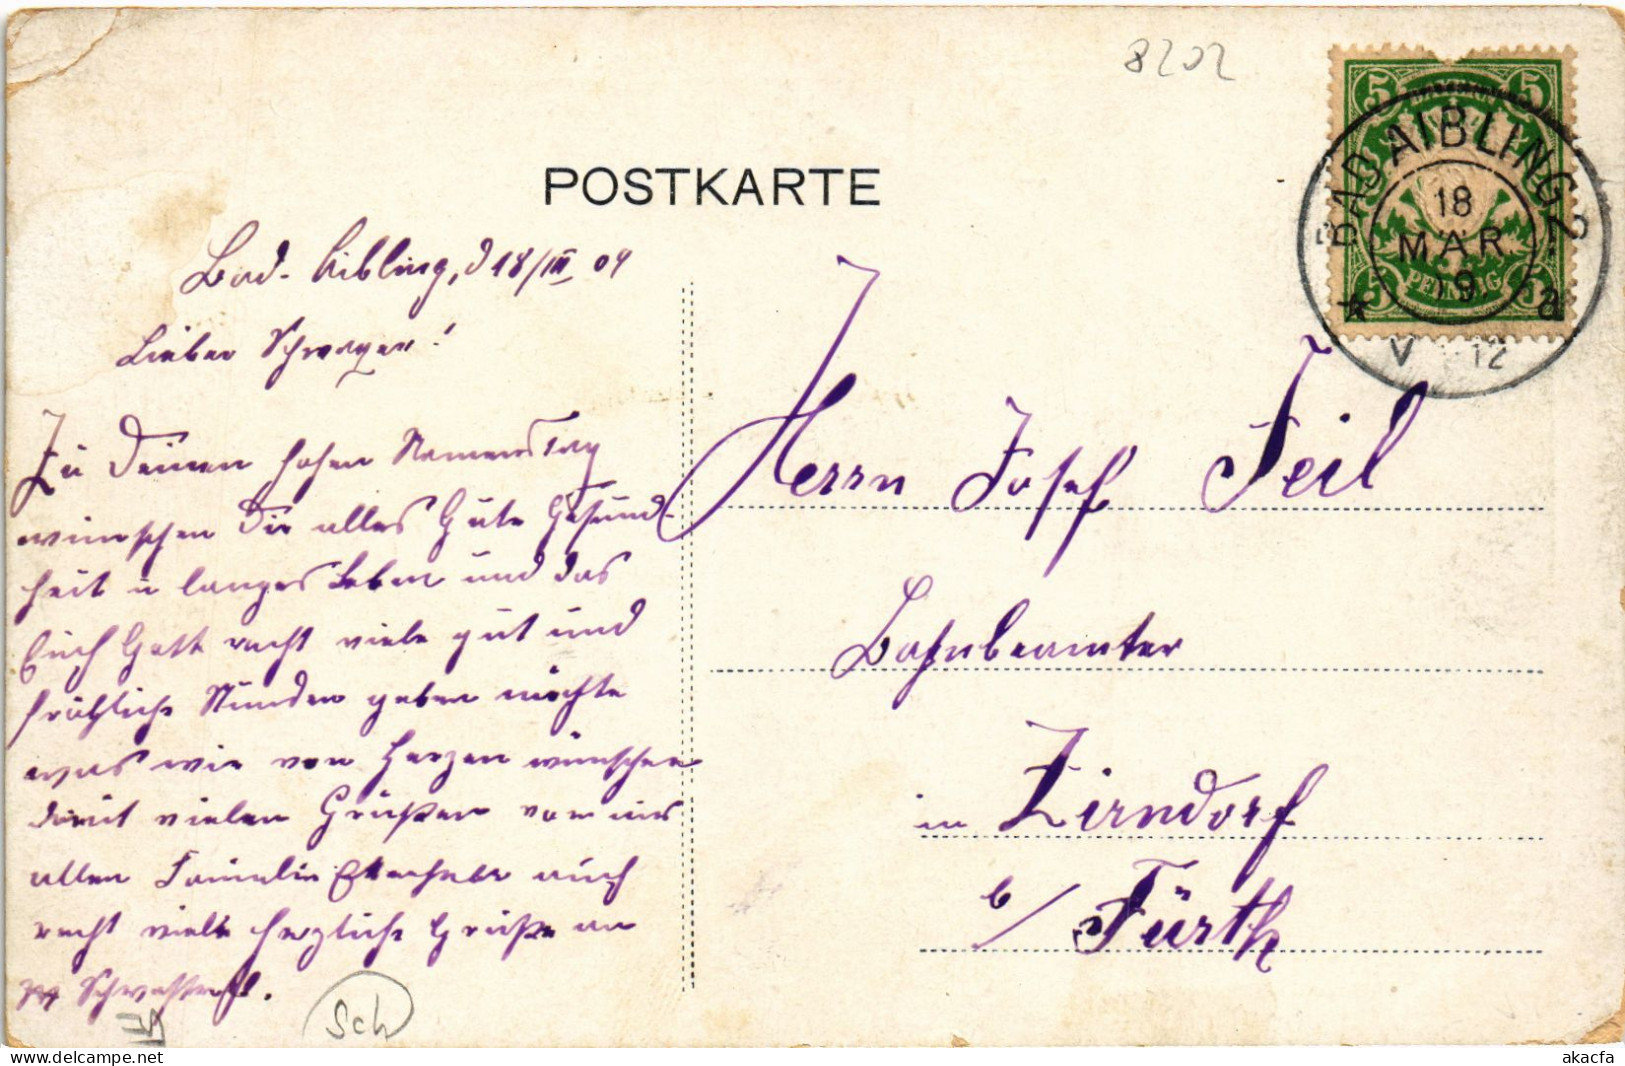 8202
POSTKARTE
BAYERN
5 5
PFENNIG
5 5
BAD AIBLING 2.
18
MAR.
09
* a
V 12
Bad-Aibling, d 18/III 09
Lieber Schwager!
Zu Deinem hohen Namenstag
wünschen Dir alles Gute Gesund-
heit u langes Leben und das
Euch Gott recht viele gut und
fröhliche Stunden geben möchte
was wir von Herzen wünschen
damit vielen Grüßen von uns
allen Familie auch
recht viele herzliche Grüße an
Schwester
Herrn Josef Feil
Bahnbeamter
in Zirndorf
b/ Fürth
Sch
akacfa
www.delcampe.net